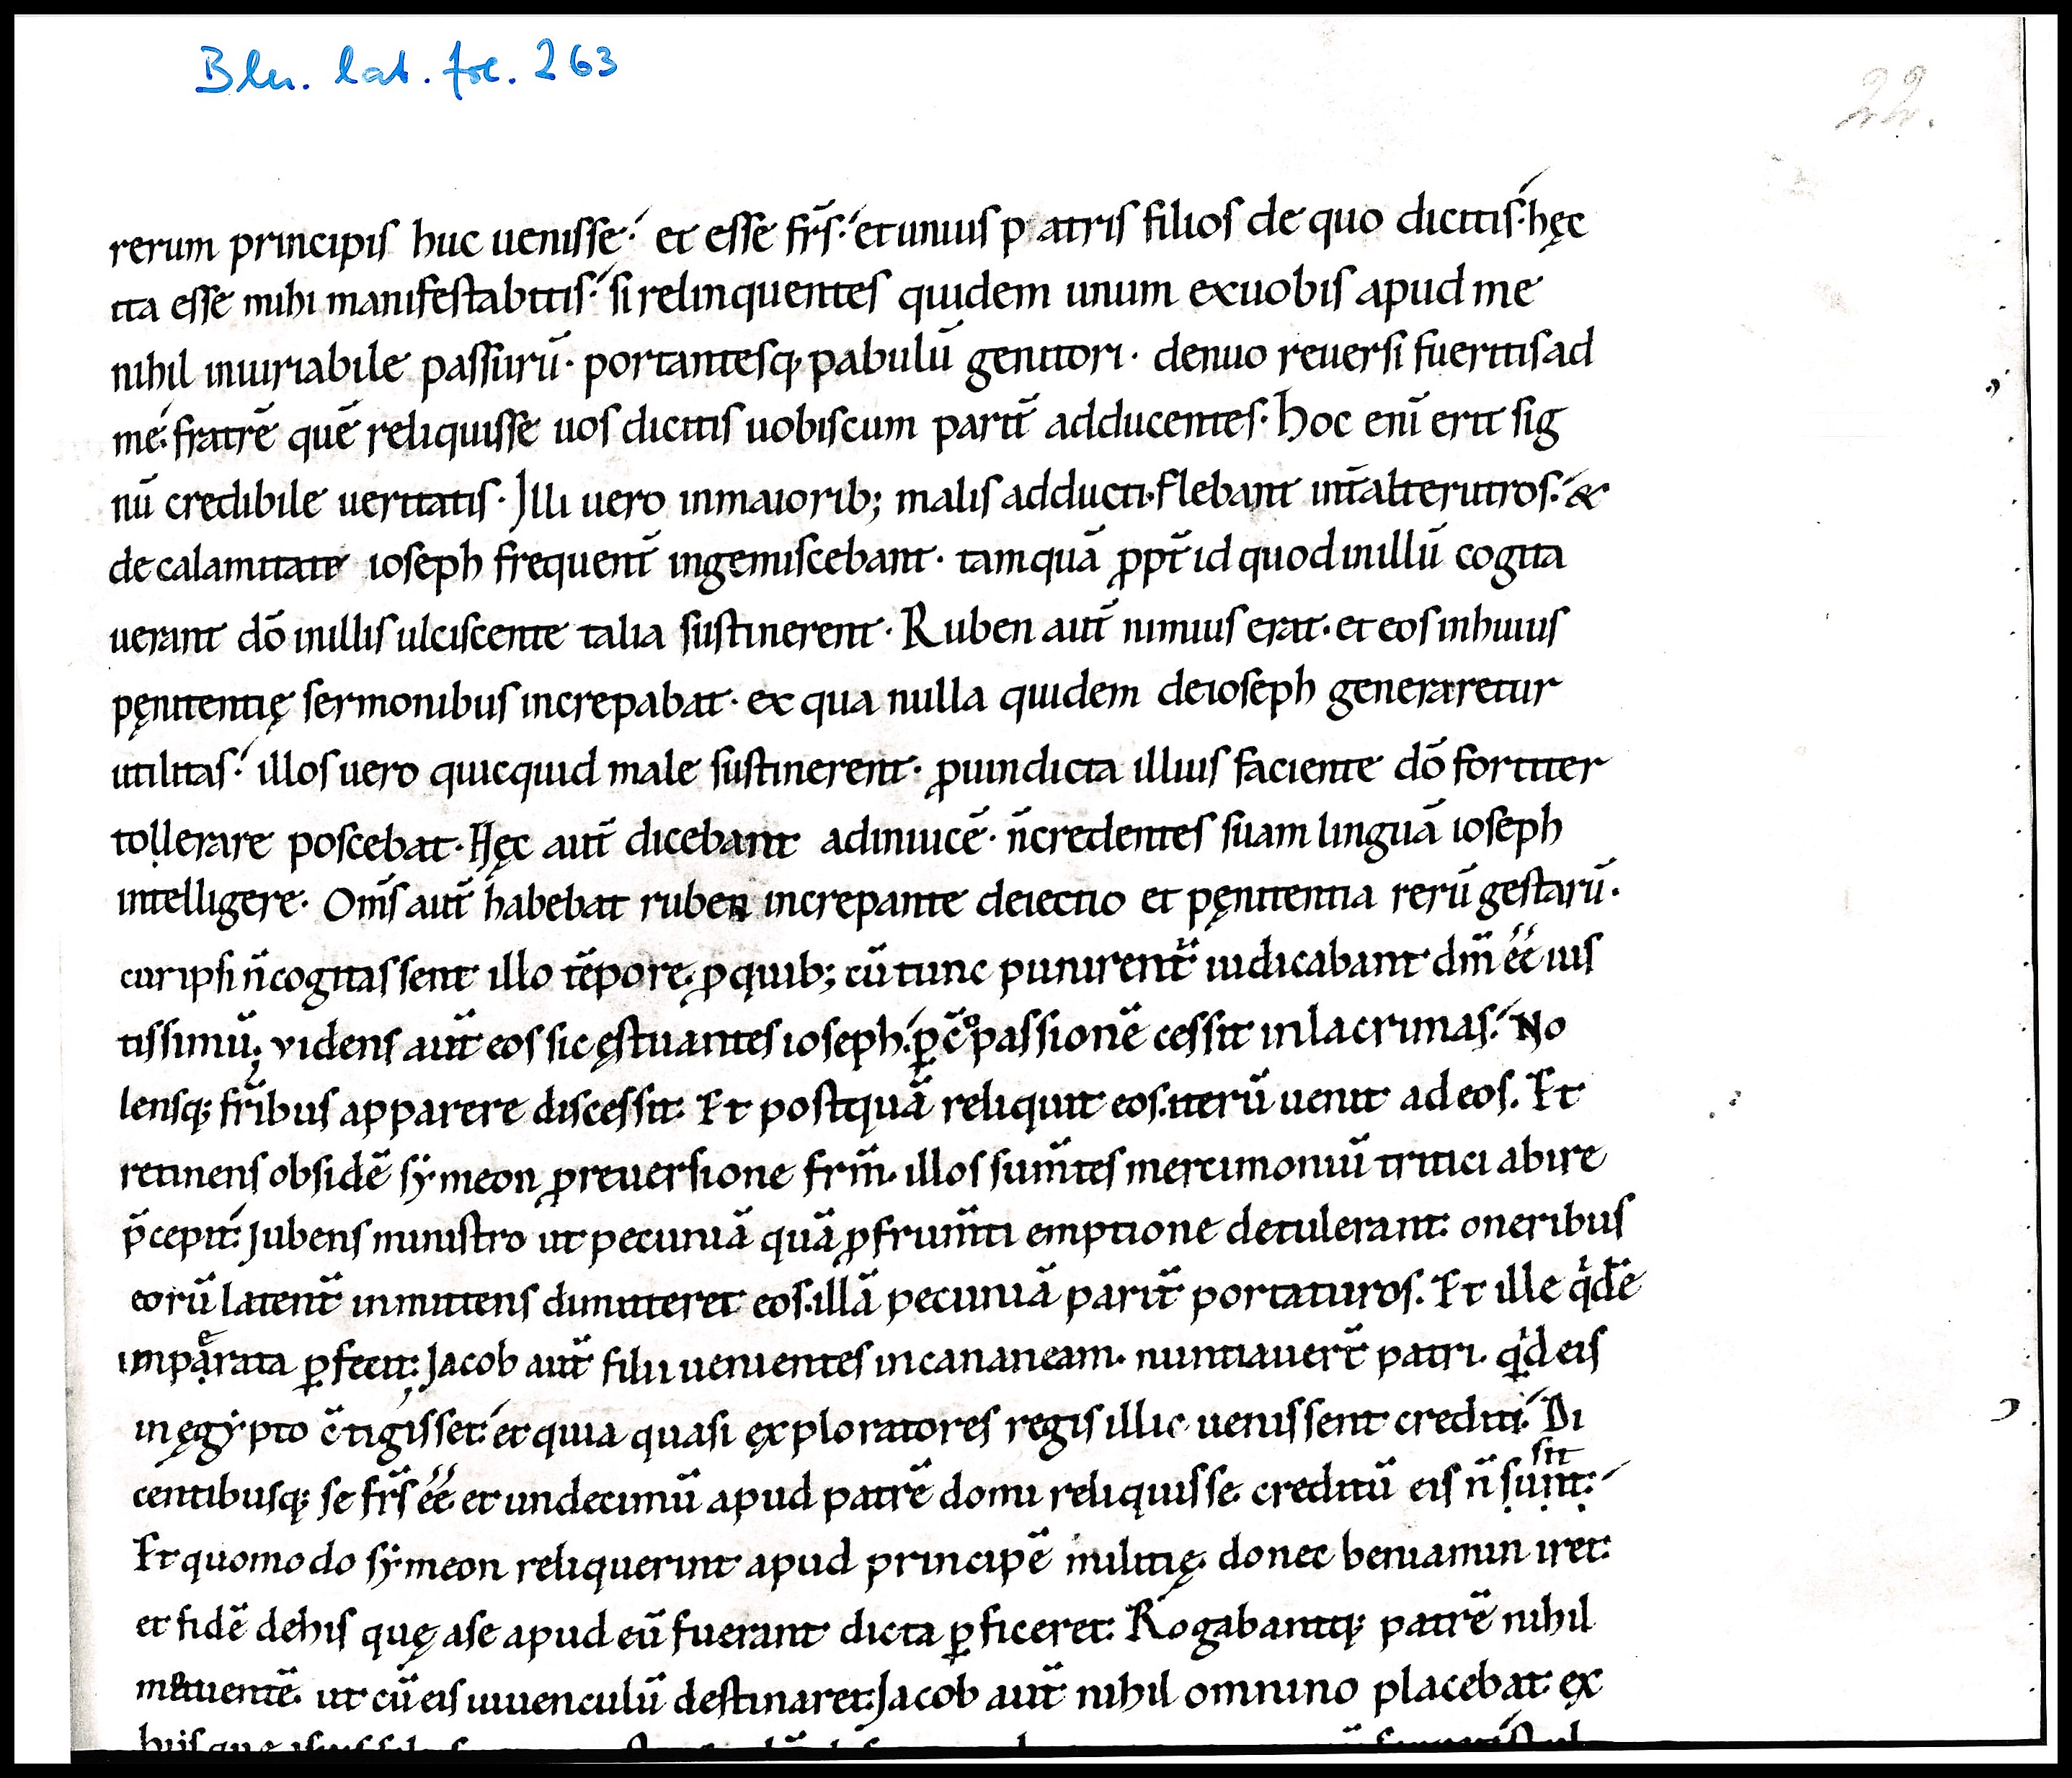 Bln. lat. fol. 263
22.
rerum principis huc uenisse. et esse fr̄s. et unius patris filios de quo dicitis. hęc
ita esse mihi manifestabitis. si relinquentes quidem unum exuobis apud me
nihil iniuriabile passurū. portantesq; pabulū genitori. denuo reuersi fueritis ad
me. fratrē quē reliquisse uos dicitis uobiscum parit̄ adducentes. Hoc enī erit sig
nū credibile ueritatis. Illi uero inmaiorib; malis adducti. flebant int̄alterutros. &
de calamitate ioseph frequent̄ ingemiscebant. tamquā ꝓpt̄ id quod inillū cogita
uerant dō inillis ulciscente talia sustinerent. Ruben aut̄ nimius erat. et eos inhuius
pęnitentię sermonibus increpabat. ex qua nulla quidem deioseph generaretur
utilitas. illos uero quicquid male sustinerent. ꝓuindicta illius faciente dō fortiter
tolḷerare poscebat. Hęc aut̄ dicebant adinuicē. n̄credentes suam linguā ioseph
intelligere. Om̄s aut̄ habebat ruben increpante deiectio et pęnitentia rerū gestarū.
cur ipsi n̄cogitassent illo tēpore. ꝓquib; cū tunc punirent̄ iudicabant dm̄ ēē ius
tissimū; videns aut̄ eos sic ęstuantes ioseph. ꝑc̄opassionē cessit inlacrimas. No
lensq; fr̄ibus apparere discessit. Et postquā reliquit eos. iterū uenit ad eos. Et
retinens obsidē sẏmeon ꝓreuersione frm̄. illos sum̄tes mercimoniū tritici abire
p̄cepit. Jubens ministro ut pecuniā quā ꝓfrum̄ti emptione detulerant. oneribus
eorū latent̄ inmittens dimitteret eos. illā pecuniā parit̄ portaturos. Et ille q'dē
impạerata ꝑfecit. Jacob aut̄ filii uenientes incananeam. nuntiauer̄t patri. q'd eis
in ęgẏpto c̄tigisset. et quia quasi ęxploratores regis illic uenissent crediti. Di
centibusq; se fr̄s ēē. et undecimū apud patrē domi reliquisse. creditū eis n̄ sụṇt. sit
Et quomodo sẏmeon reliquerint apud principē militię. donec beniamin iret.
et fidē dehis quę ase apud eū fuerant dicta ꝑficeret. Rogabantq; patrē nihil
metuentē. ut cū eis iuuenculū destinaret. Jacob aut̄ nihil omnino placebat ęx